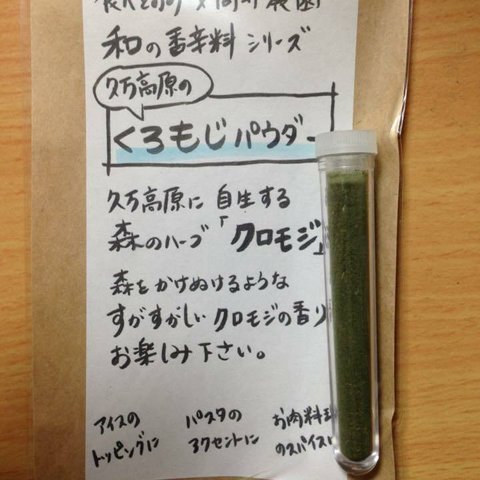 和の香辛料シリーズ
久万高原の
くろもじパウダー
久万高原に自生する
森のハーブ「クロモジ」
森をかけぬけるような
すがすがしいクロモジの香り
お楽しみ下さい。
アイスの
トッピングに
パスタの
アクセントに
お肉料理
のスパイスに